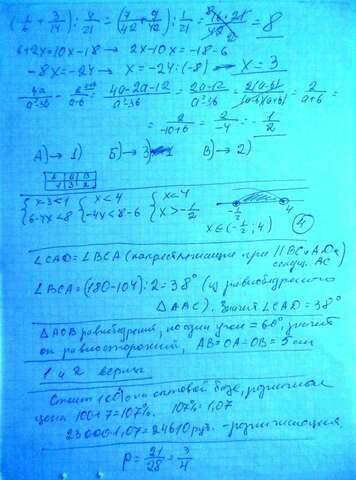 (1/6 + 3/14) : 1/21 = (7/42 + 9/42) : 1/21 = 16·21/42 = 8
6+2x=10x-18 → 2x-10x = -18-6
-8x=-24 → x = -24:(-8) → x = 3
= 4a-2a-12/a²-36 = 2a-12/a²-36 = 2(a-6)/(a-6)(a+6) = 2/a+6 =
= 2/-10+6 = 2/-4 = -1/2
А) → 1) Б) → 3) В) → 2)
А Б В
1 3 2
{ x-3<1 { x<4 { x<4
6-4x<8 -4x<8-6 x>-1/2 -1/2 4
x∈(-1/2; 4) 4
∠CAD = ∠BCA (накрестлежащие при || BC и AD и
секущ. AC)
∠BCA = (180-104):2 = 38° (из равнобедренного
Значит ∠CAD = 38°
△AOB равнобедрен, но один угол = 60°, значит
он равносторонний, AB=OA=OB=5 см
1 и 2 верны
Стоит на оптовой базе, розничная
цена 100+7=107%. 107% = 1,07
23000·1,07=24610 руб. - розничная цена
P = 21/28 = 3/4